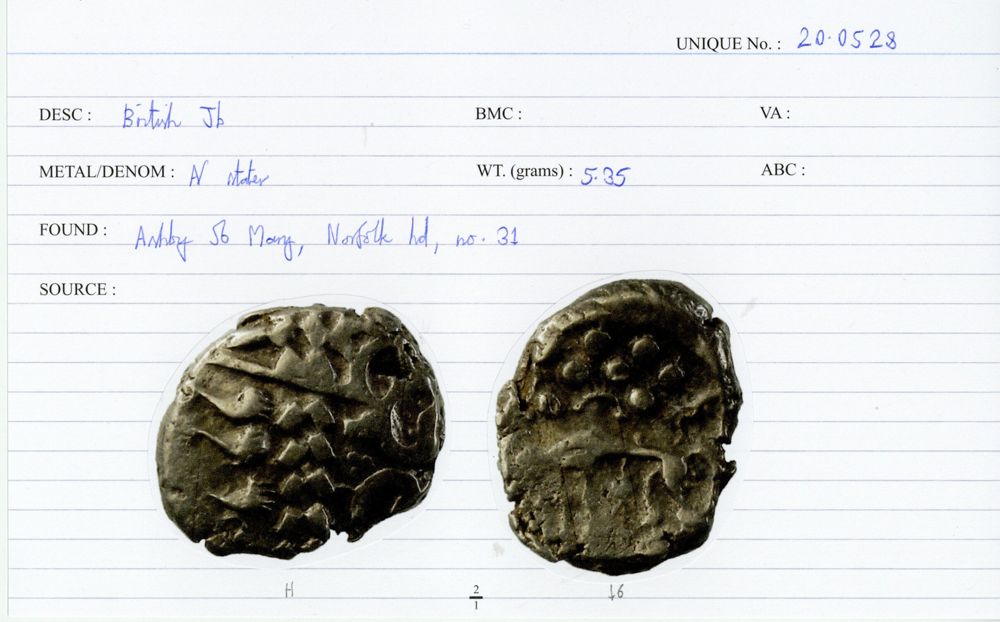 UNIQUE No. : 20.0528
DESC : British Jb BMC : VA :
METAL/DENOM : N stater WT. (grams) : 5.35 ABC :
FOUND : Ashby St Mary, Norfolk hd, no. 31
SOURCE :
H 2/1 J6